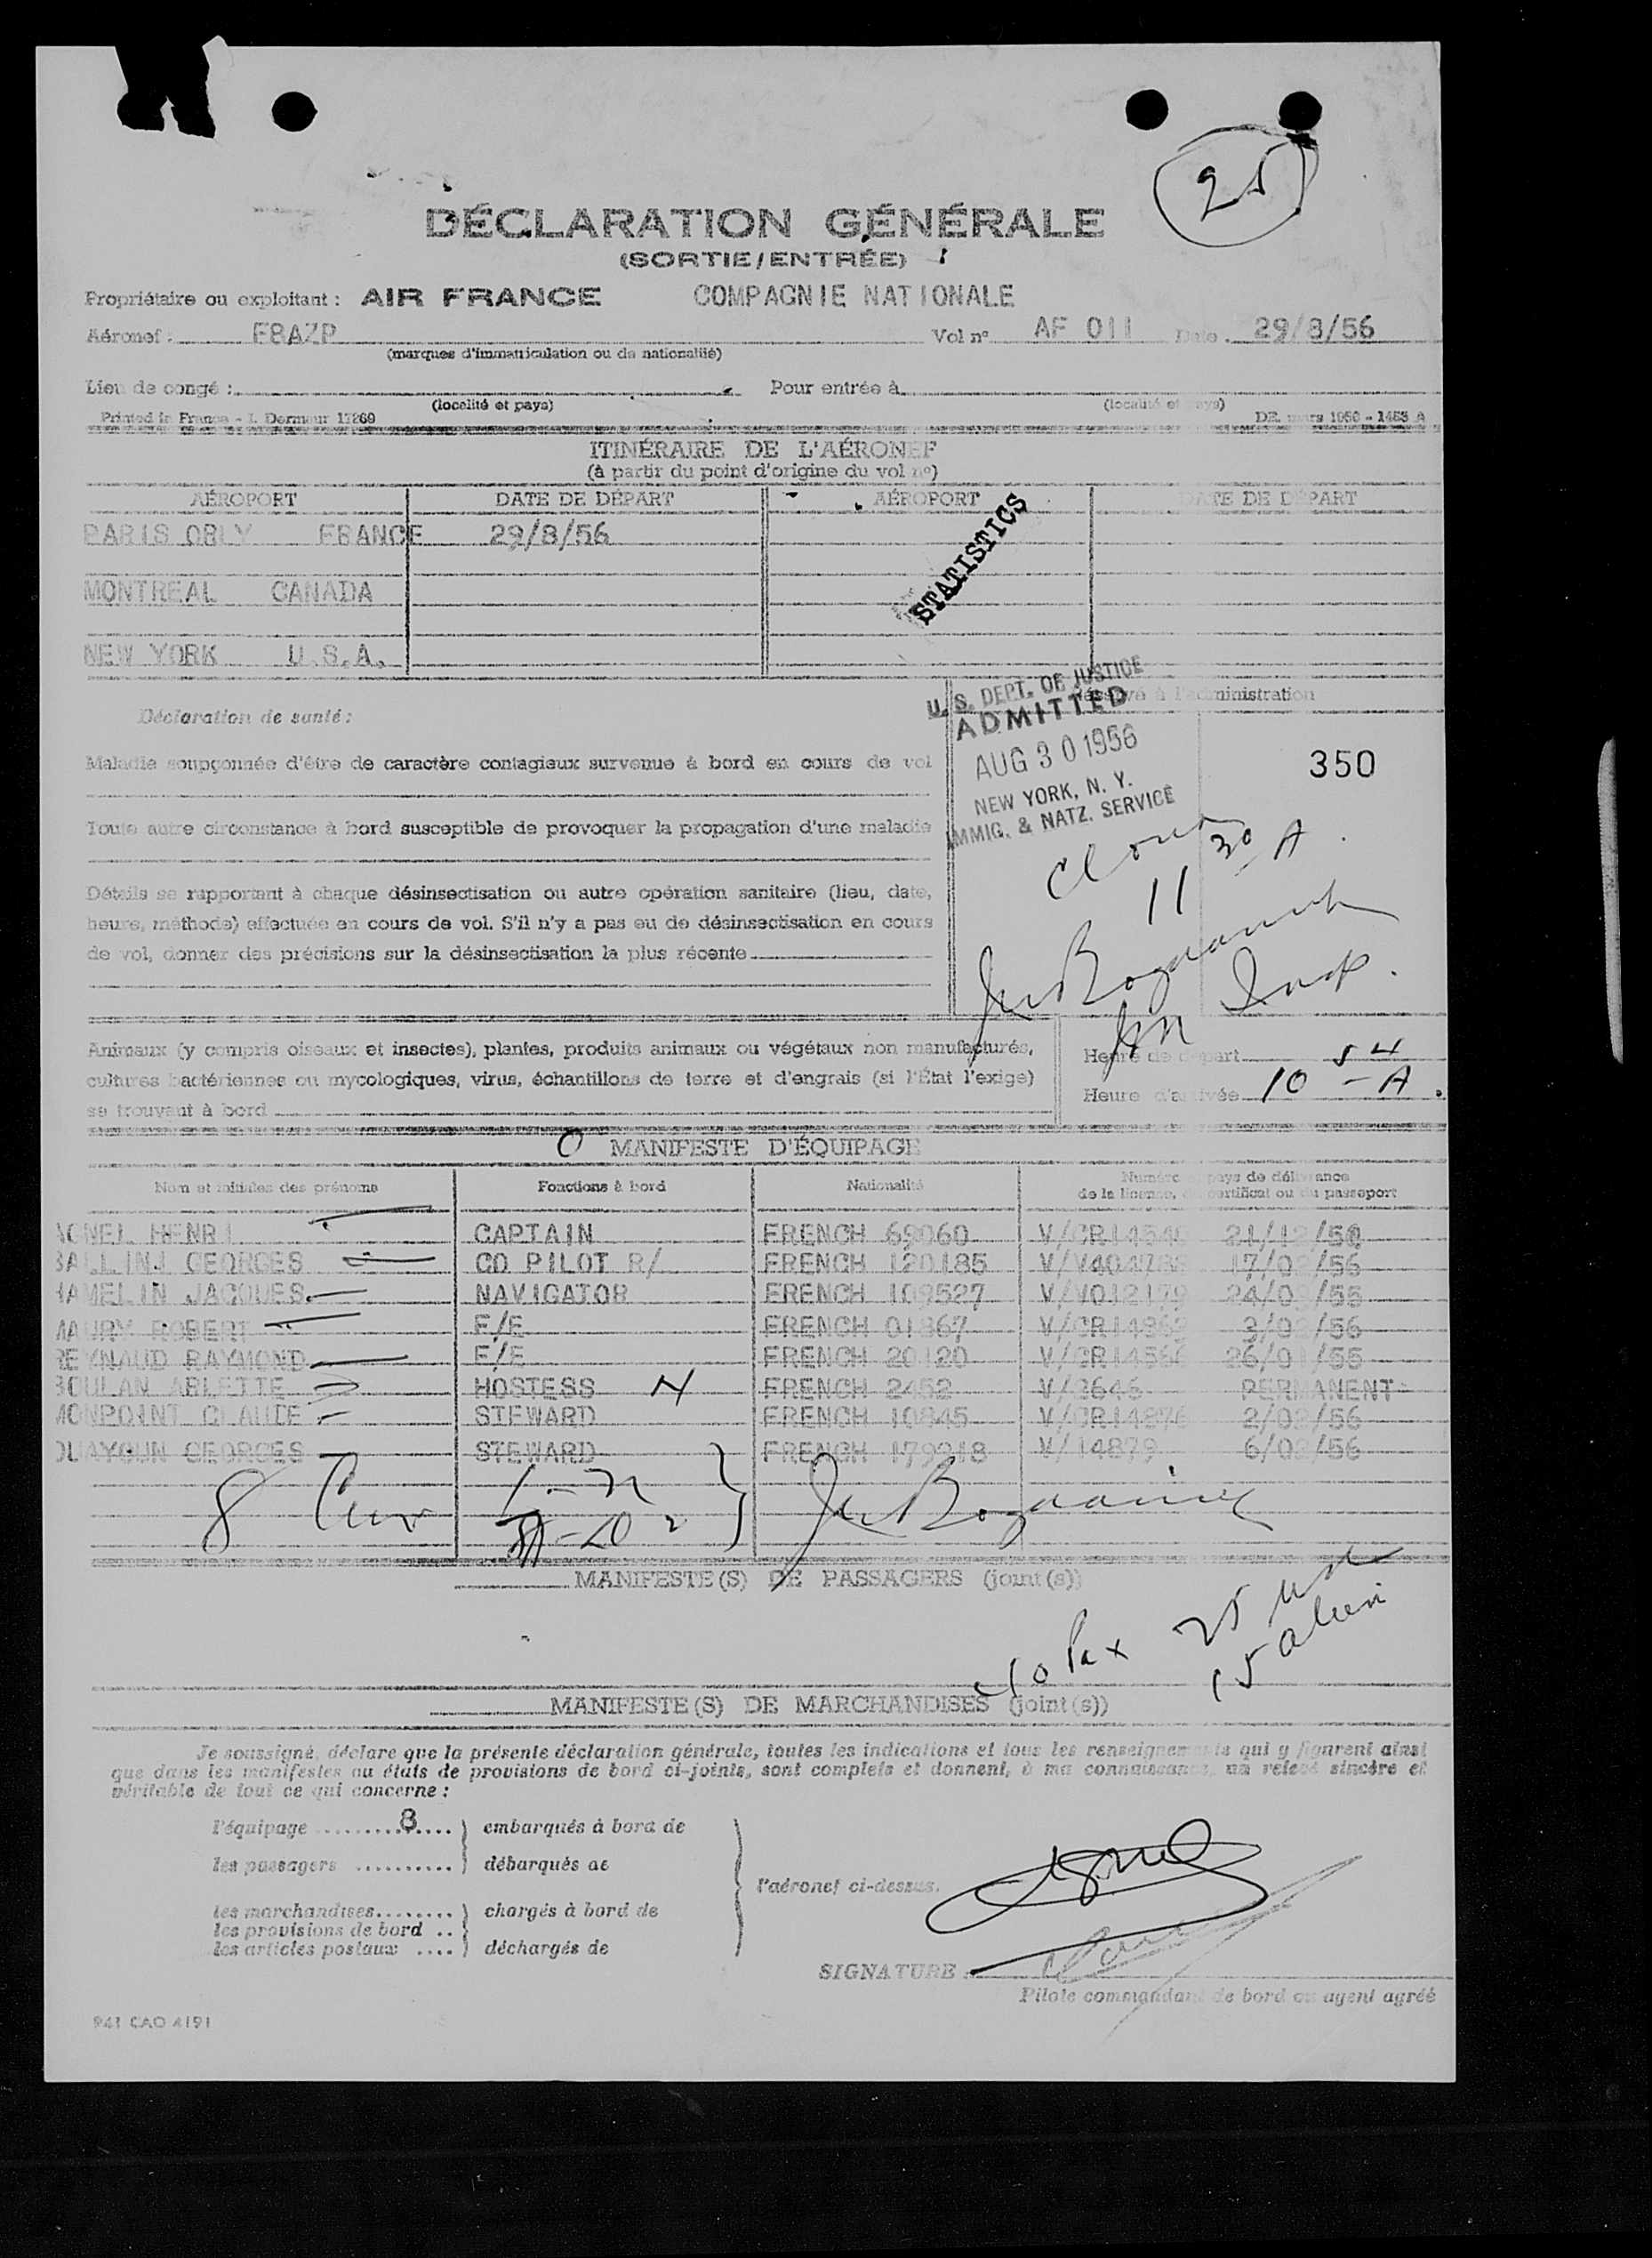 25
DÉCLARATION GÉNÉRALE
(SORTIE/ENTRÉE)
Propriétaire ou exploitant : AIR FRANCE COMPAGNIE NATIONALE
Aéronef : FBAZP Vol nº AF 011 Date 29/8/56
(marques d'immatriculation ou de nationalité)
Lieu de congé : Pour entrée à
(localité et pays) (localité et pays)
Printed in France - I. Dormeur 17269 DR. mars 1950 - 1453 A
ITINÉRAIRE DE L'AÉRONEF
(à partir du point d'origine du vol nº)
AÉROPORT DATE DE DÉPART AÉROPORT DATE DE DÉPART
PARIS ORLY FRANCE 29/8/56
STATISTICS
MONTREAL CANADA
NEW YORK U.S.A.
U. S. DEPT. OF JUSTICE
Réservé à l'administration
ADMITTED
AUG 30 1956
NEW YORK, N. Y.
IMMIG. & NATZ. SERVICE
350
Déclaration de santé :
Maladie soupçonnée d'être de caractère contagieux survenue à bord en cours de vol
Toute autre circonstance à bord susceptible de provoquer la propagation d'une maladie
11 30 A
Détails se rapportant à chaque désinsectisation ou autre opération sanitaire (lieu, date,
heure, méthode) effectuée en cours de vol. S'il n'y a pas eu de désinsectisation en cours
de vol, donner des précisions sur la désinsectisation la plus récente
Insp.
Animaux (y compris oiseaux et insectes), plantes, produits animaux ou végétaux non manufacturés,
cultures bactériennes ou mycologiques, virus, échantillons de terre et d'engrais (si l'État l'exige)
se trouvant à bord
Heure de départ
Heure d'arrivée 10 54 A.
MANIFESTE D'ÉQUIPAGE
Nom et initiales des prénoms Fonctions à bord Nationalité Numéro et pays de délivrance
de la licence, du certificat ou du passeport
AGNEL HENRI CAPTAIN FRENCH 69060
BALLINI GEORGES CO PILOT R/ FRENCH 120185
HAMELIN JACQUES NAVIGATOR FRENCH 109527
MAURY ROBERT F/E FRENCH 01867
REYNAUD RAYMOND F/E FRENCH 20120
BOULAN ARLETTE HOSTESS FRENCH 2452 V/2646 PERMANENT
MONPOINT CLAUDE STEWARD FRENCH 10845
GEORGES STEWARD FRENCH 179218 V/14879
8 Crew
MANIFESTE(S) DE PASSAGERS (joint(s))
40 Pax 25 USC
15 alien
MANIFESTE(S) DE MARCHANDISES (joint(s))
Je soussigné, déclare que la présente déclaration générale, toutes les indications et tous les renseignements qui y figurent ainsi
que dans les manifestes ou états de provisions de bord ci-joints, sont complets et donnent, à ma connaissance, un relevé sincère et
véritable de tout ce qui concerne :
l'équipage 8 embarqués à bord de
les passagers débarqués de
l'aéronef ci-dessus.
les marchandises chargés à bord de
les provisions de bord
les articles postaux déchargés de
SIGNATURE
Pilote commandant de bord ou agent agréé
941 CAO 4191